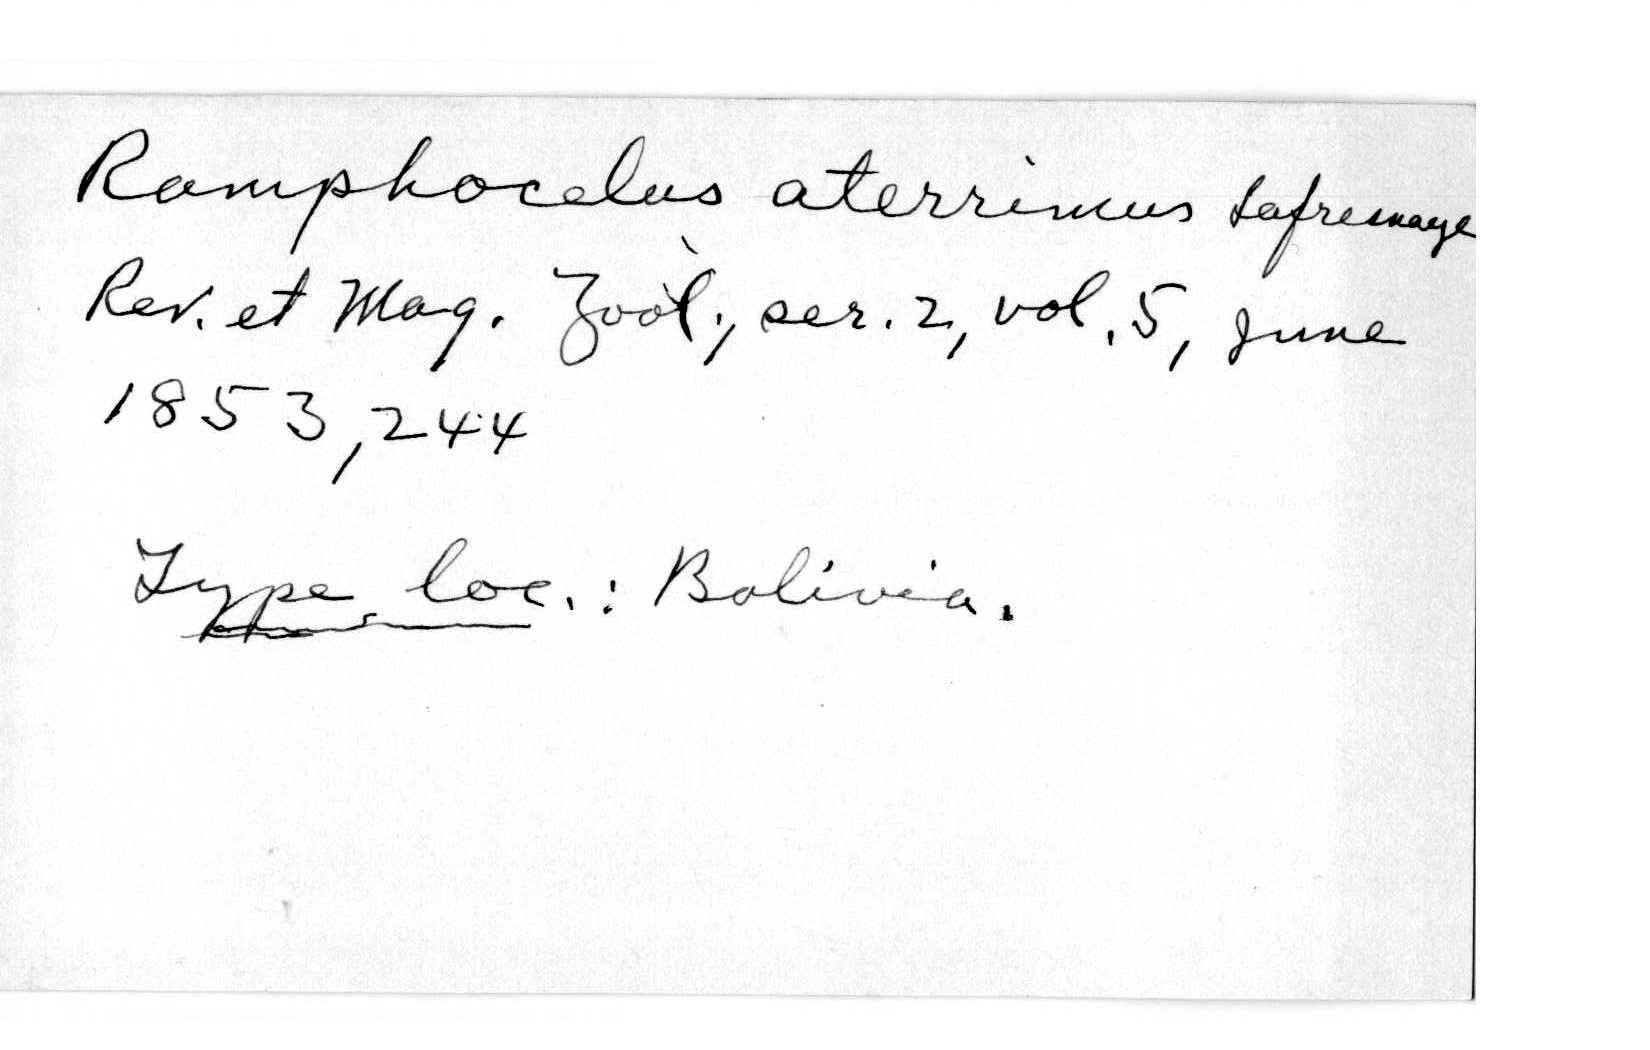 Ramphocelus aterrimus Lafresnaye
Rev. et Mag. Zoòl., ser. 2, vol. 5, June
1853, 244
Type loc.: Bolivia.